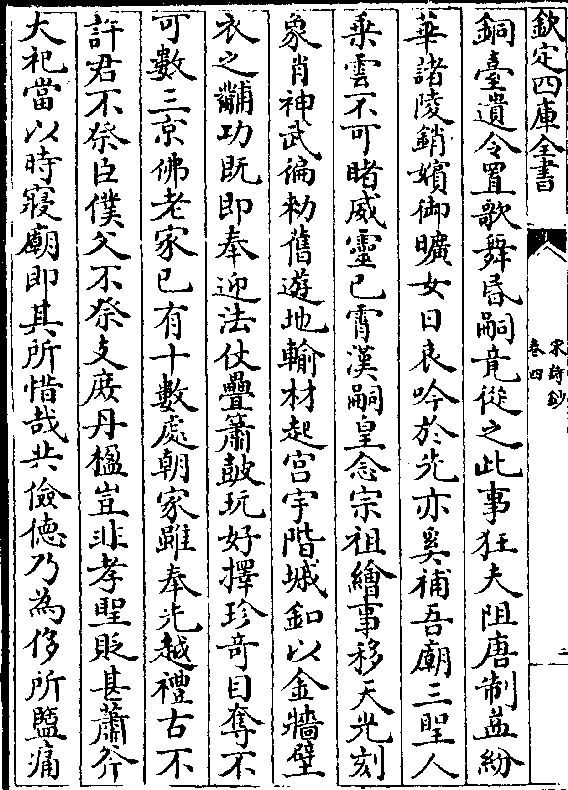 欽定四庫全書
宋詩鈔
卷四
二
銅臺遺令置歌舞昏嗣竟從之此事狂夫阻唐制益紛
華諸陵銷嬪御曠女日哀吟於先亦奚補吾廟三聖人
乗雲不可睹威靈已霄漢嗣皇念宗祖繪事移天光刻
象肖神武徧勅舊遊地輸材起宫宇階墄釦以金牆壁
衣之黼功既即奉迎法仗疊簫鼓玩好擇珍奇目奪不
可數三京佛老家已有十數處朝家雖奉先越禮古不
許君不祭臣僕父不祭支庶丹楹豈非孝聖貶甚蕭斧
大祀當以時寢廟即其所惜哉共儉德乃為侈所蠱痛